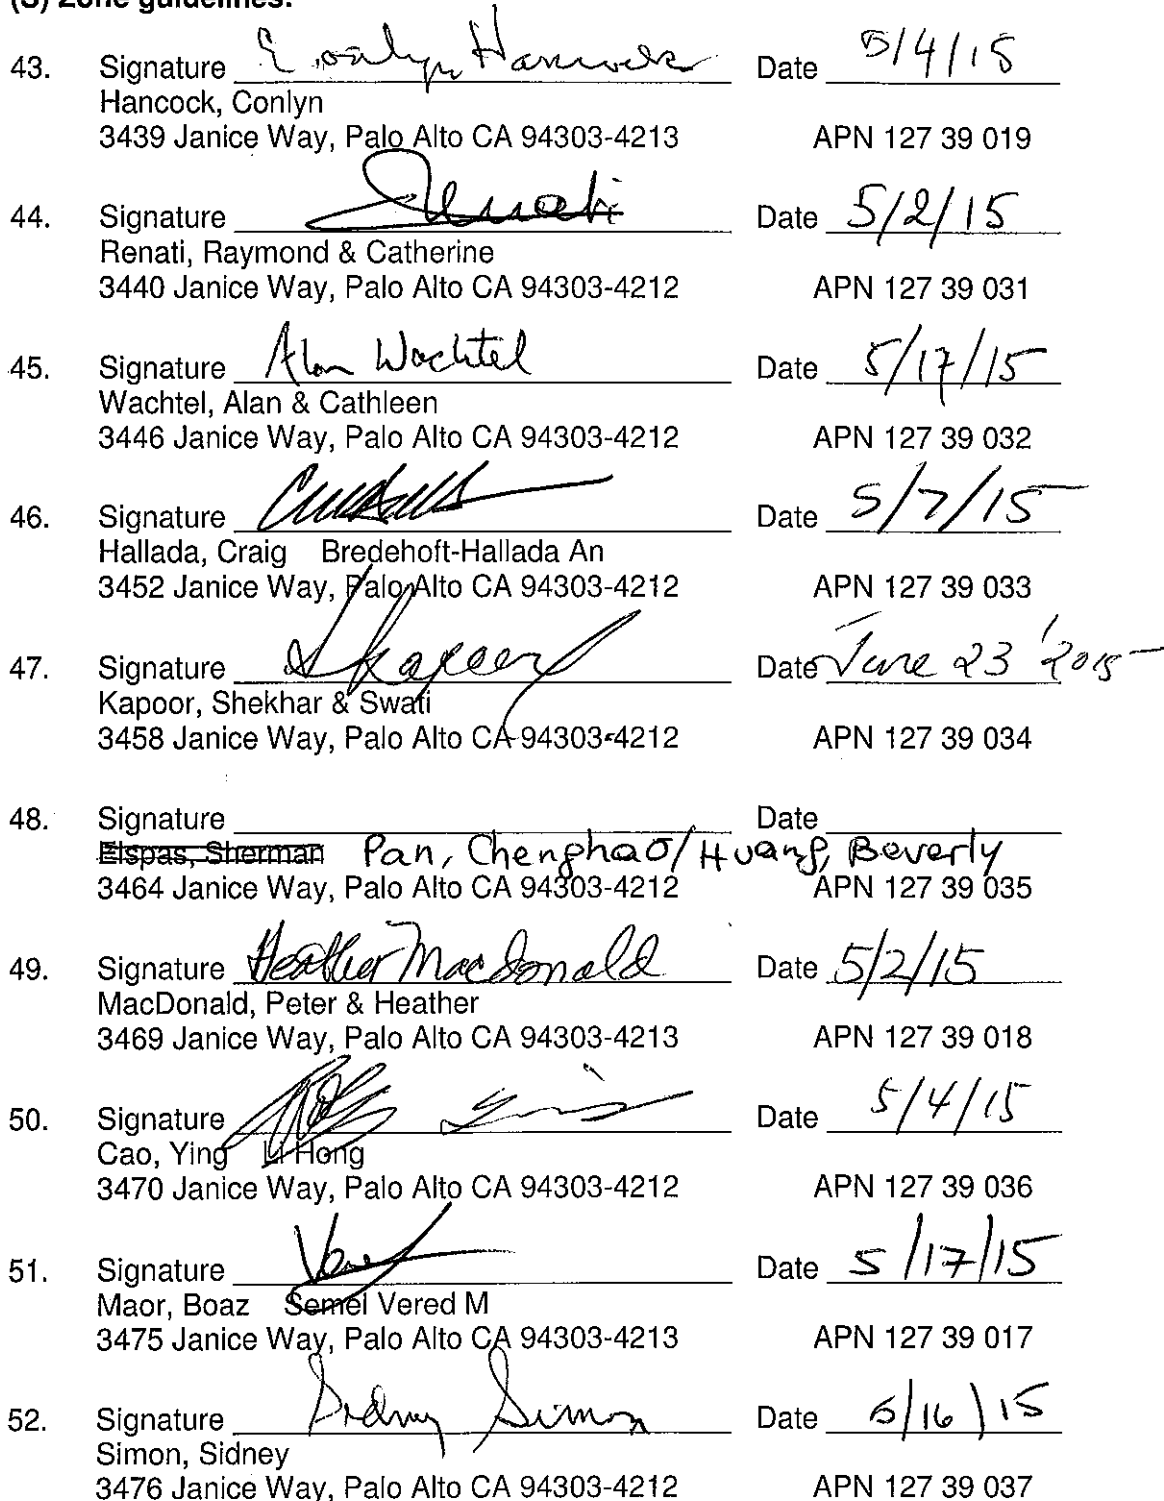 (S) Zone guidelines.
43. Signature Conlyn Hancock Date 5/4/15
Hancock, Conlyn
3439 Janice Way, Palo Alto CA 94303-4213 APN 127 39 019
44. Signature Renati Date 5/2/15
Renati, Raymond & Catherine
3440 Janice Way, Palo Alto CA 94303-4212 APN 127 39 031
45. Signature Alan Wachtel Date 5/17/15
Wachtel, Alan & Cathleen
3446 Janice Way, Palo Alto CA 94303-4212 APN 127 39 032
46. Signature Date 5/7/15
Hallada, Craig Bredehoft-Hallada An
3452 Janice Way, Palo Alto CA 94303-4212 APN 127 39 033
47. Signature SKapoor Date June 23 '2015
Kapoor, Shekhar & Swati
3458 Janice Way, Palo Alto CA 94303-4212 APN 127 39 034
48. Signature Date
Elspas, Sherman Pan, Chenghao/Huang, Beverly
3464 Janice Way, Palo Alto CA 94303-4212 APN 127 39 035
49. Signature Heather MacDonald Date 5/2/15
MacDonald, Peter & Heather
3469 Janice Way, Palo Alto CA 94303-4213 APN 127 39 018
50. Signature Date 5/4/15
Cao, Ying Li Hong
3470 Janice Way, Palo Alto CA 94303-4212 APN 127 39 036
51. Signature Date 5/17/15
Maor, Boaz Semel Vered M
3475 Janice Way, Palo Alto CA 94303-4213 APN 127 39 017
52. Signature Sidney Simon Date 5/16/15
Simon, Sidney
3476 Janice Way, Palo Alto CA 94303-4212 APN 127 39 037